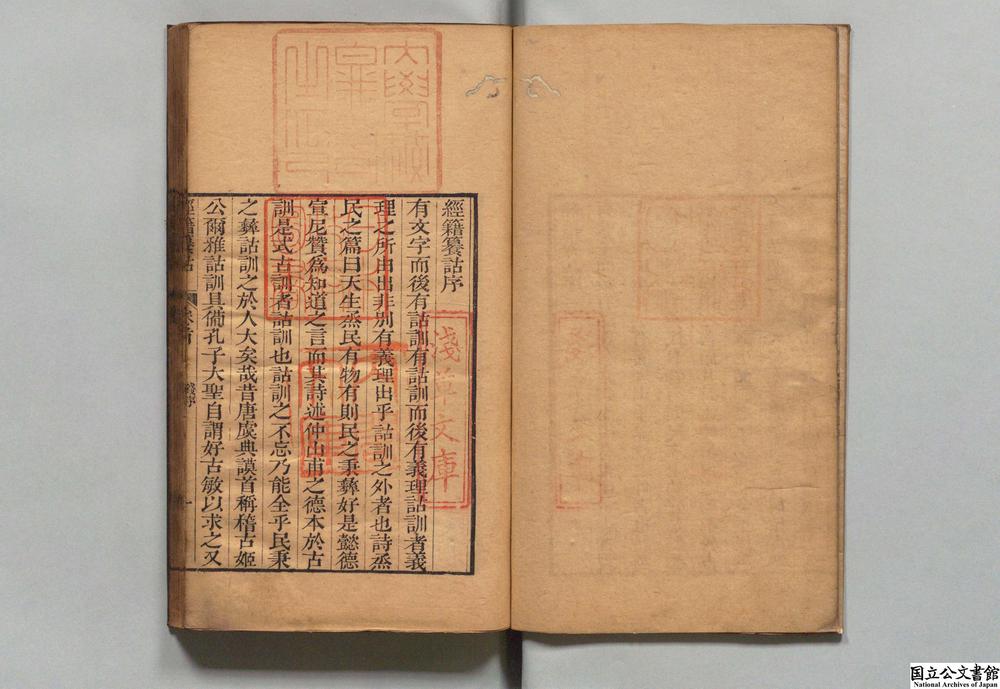 經籍籑詁序
有文字而後有詁訓有詁訓而後有義理詁訓者義
理之所由出非別有義理出乎詁訓之外者也詩烝
民之篇曰天生烝民有物有則民之秉彝好是懿德
宣尼贊爲知道之言而其詩述仲山甫之德本於古
訓是式古訓者詁訓也詁訓之不忘乃能全乎民秉
之彝詁訓之於人大矣哉昔唐虞典謨首稱稽古姬
公爾雅詁訓具備孔子大聖自謂好古敏以求之又
經籍籑詁
一
淺草文庫
国立公文書館
National Archives of Japan